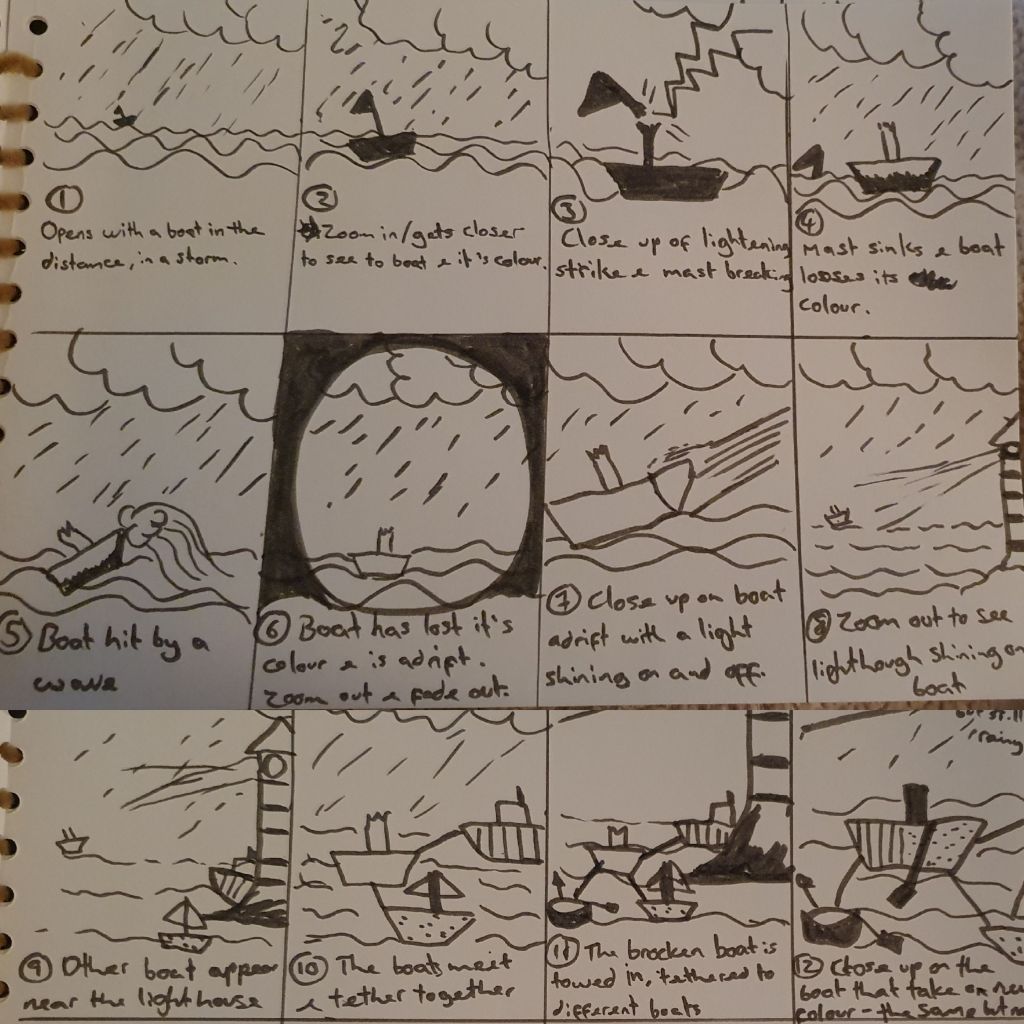 ①
Opens with a boat in the
distance, in a storm.
②
Zoom in/gets closer
to see to boat & it's colour.
③
Close up of lightening
strike & mast breaking
④
Mast sinks & boat
looses its
colour.
⑤ Boat hit by a
wave
⑥ Boat has lost it's
colour & is adrift.
Zoom out & fade out.
⑦ Close up on boat
adrift with a light
shining on and off.
⑧ Zoom out to see
lighthough shining on
boat
⑨ Other boat appear
near the lighthouse
⑩ The boats meet
& tether together
⑪ The brocken boat is
towed in, tethered to
different boats
but still
rainy
⑫ Close up on the
boat that take on new
colour - the same but